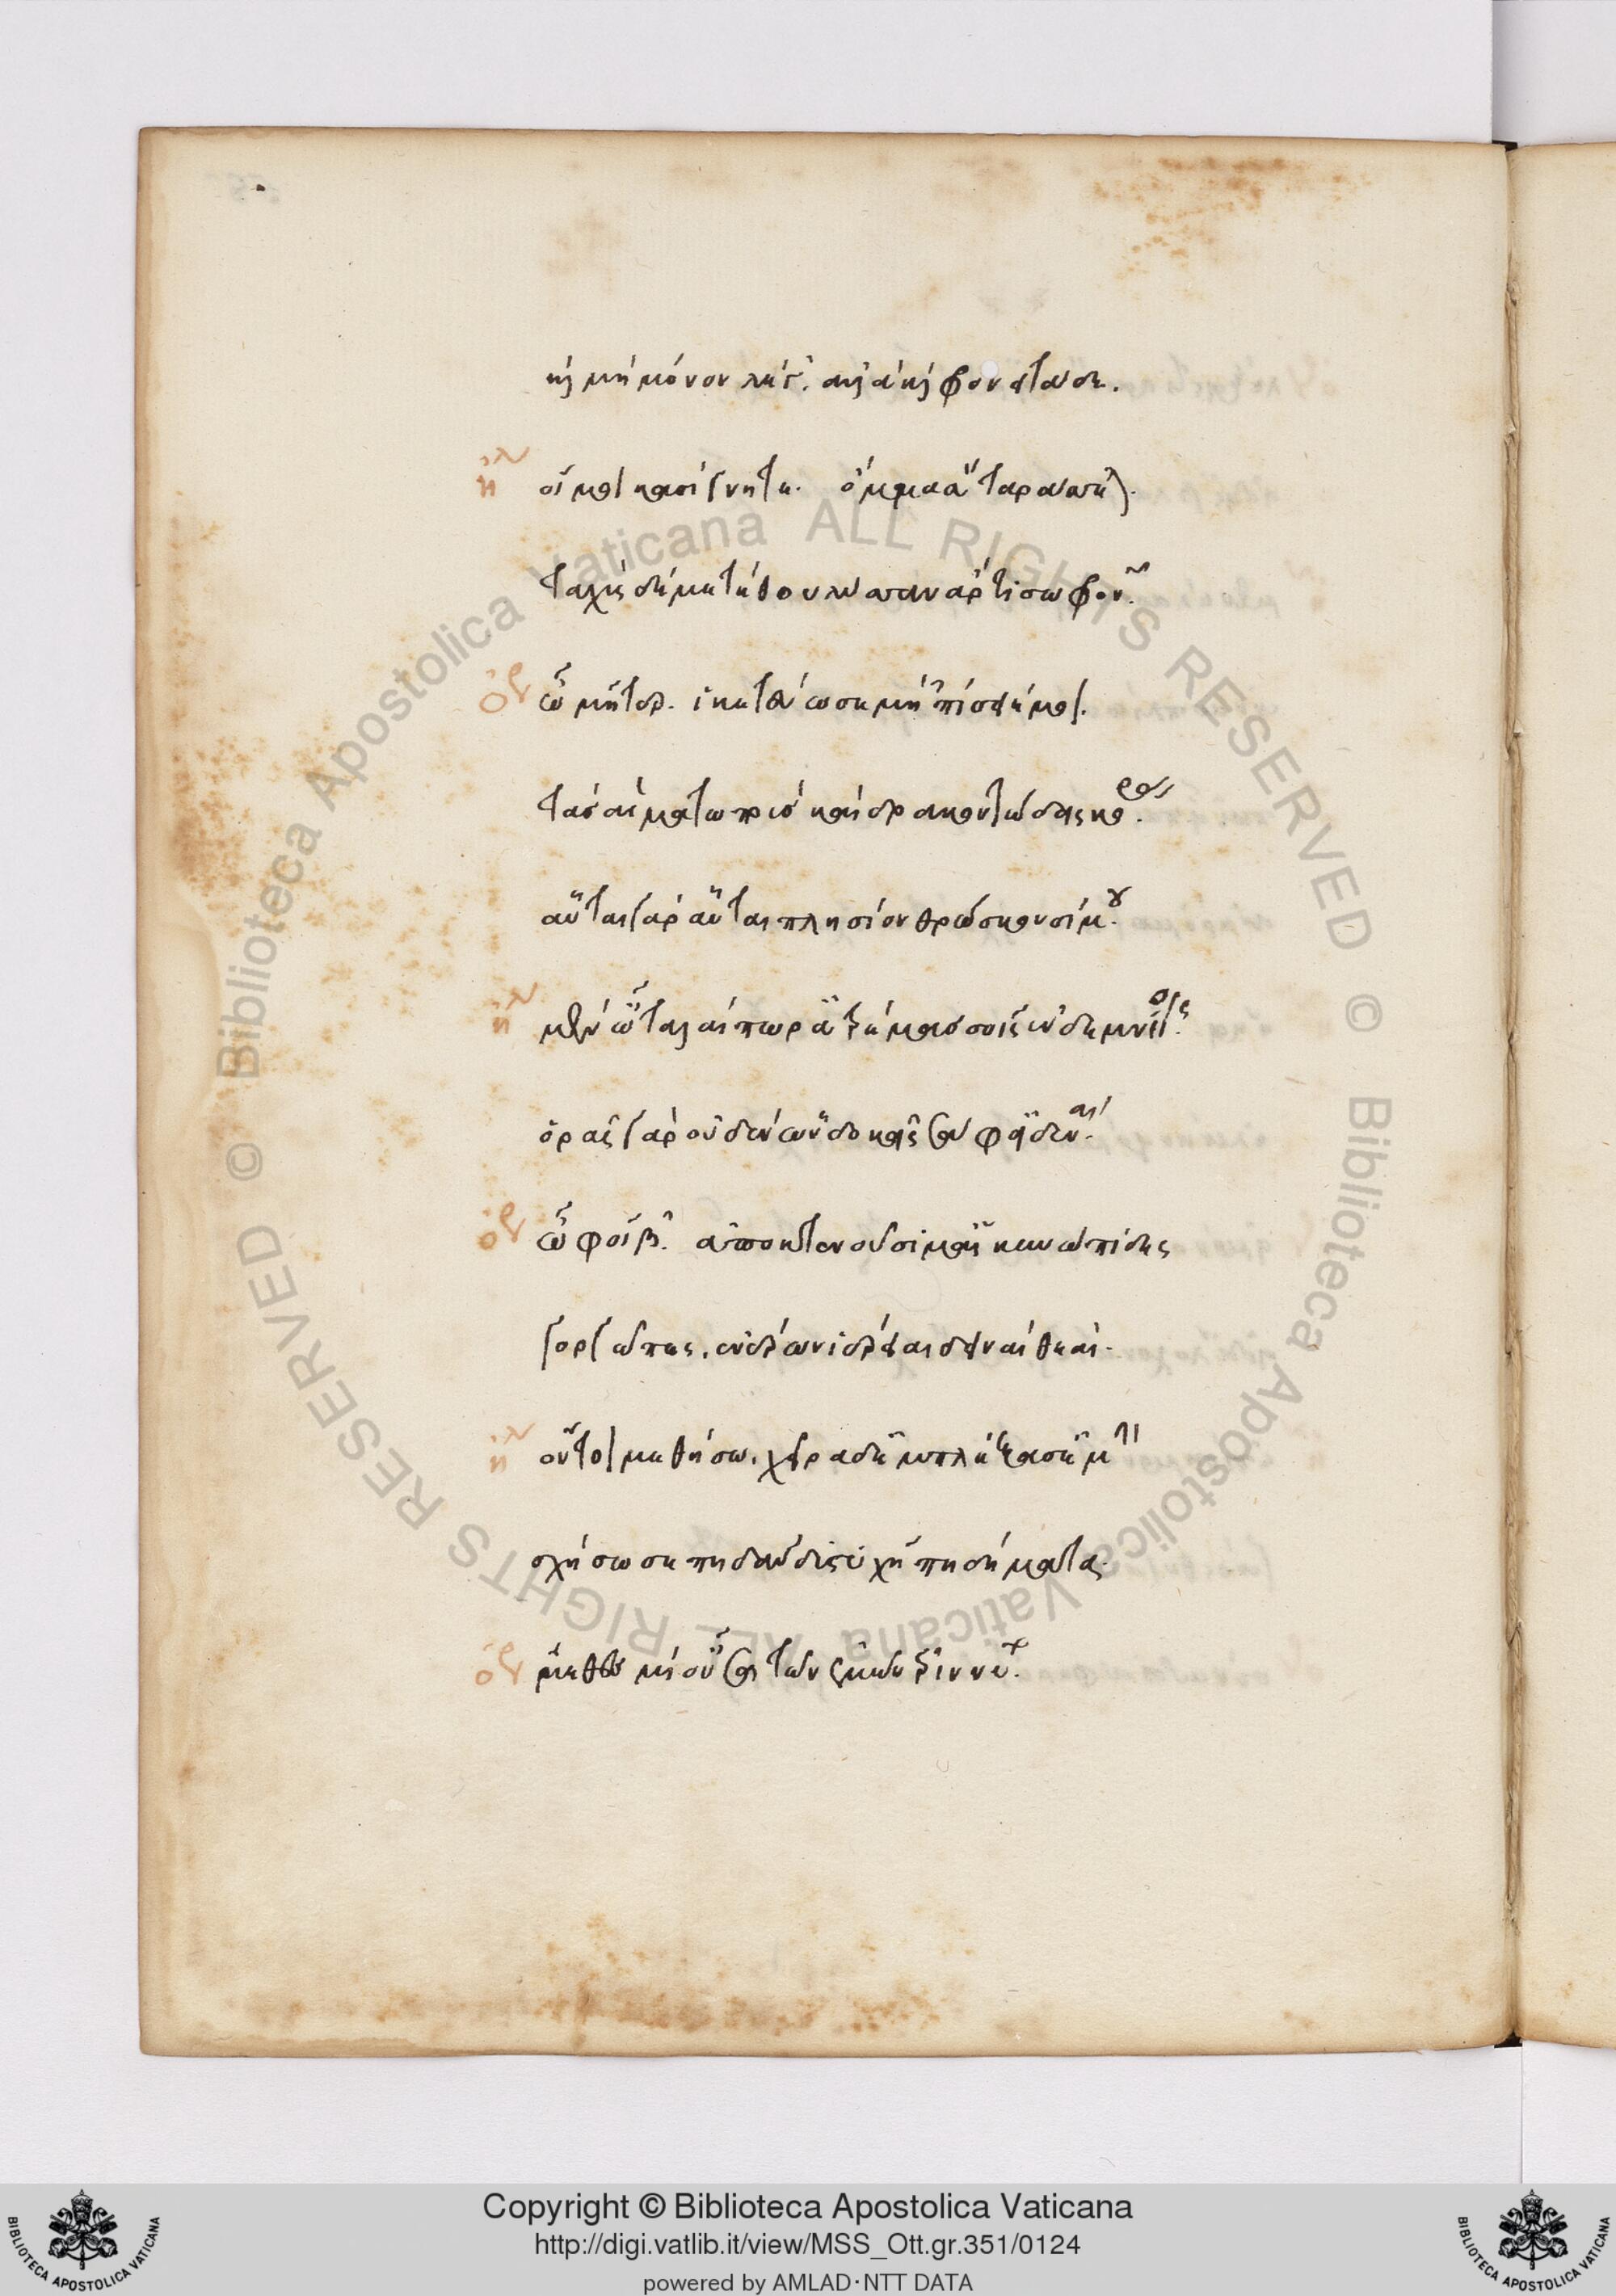 καὶ μὴ μόνον λέγ'. ἀλλὰ καὶ φρόνει τάδε.
ἠλ οἴμοι κασίγνητε. ὄμμα σὸν ταράσσεται.
ταχὺς δὲ μετέθου λύσσαν ἄρτι σωφρονῶν.
ὀρ ὦ μῆτερ. ἱκετεύω σε μὴ 'πίσειέ μοι.
τὰς αἱματωποὺς καὶ δρακοντώδεις κόρας.
αὗται γὰρ αὗται πλησίον θρώσκουσί μου.
ἠλ μέν' ὦ ταλαίπωρ' ἀτρέμας σοῖς ἐν δεμνίοις.
ὁρᾷς γὰρ οὐδὲν ὧν δοκεῖς σάφ' εἰδέναι.
ὀρ ὦ φοῖβ'. ἀποκτενοῦσί μ' αἱ κυνώπιδες
γοργῶπες. ἐνέρων ἱέρειαι δειναὶ θεαί.
ἠλ οὔτοι μεθήσω. χεῖρα δ' ἐμπλέξασ' ἐμὴν
σχήσω σε πηδᾶν δυστυχῆ πηδήματα.
ὀρ μέθες μί' οὖσα τῶν ἐμῶν ἐριννύων.
Copyright © Biblioteca Apostolica Vaticana
http://digi.vatlib.it/view/MSS_Ott.gr.351/0124
powered by AMLAD·NTT DATA